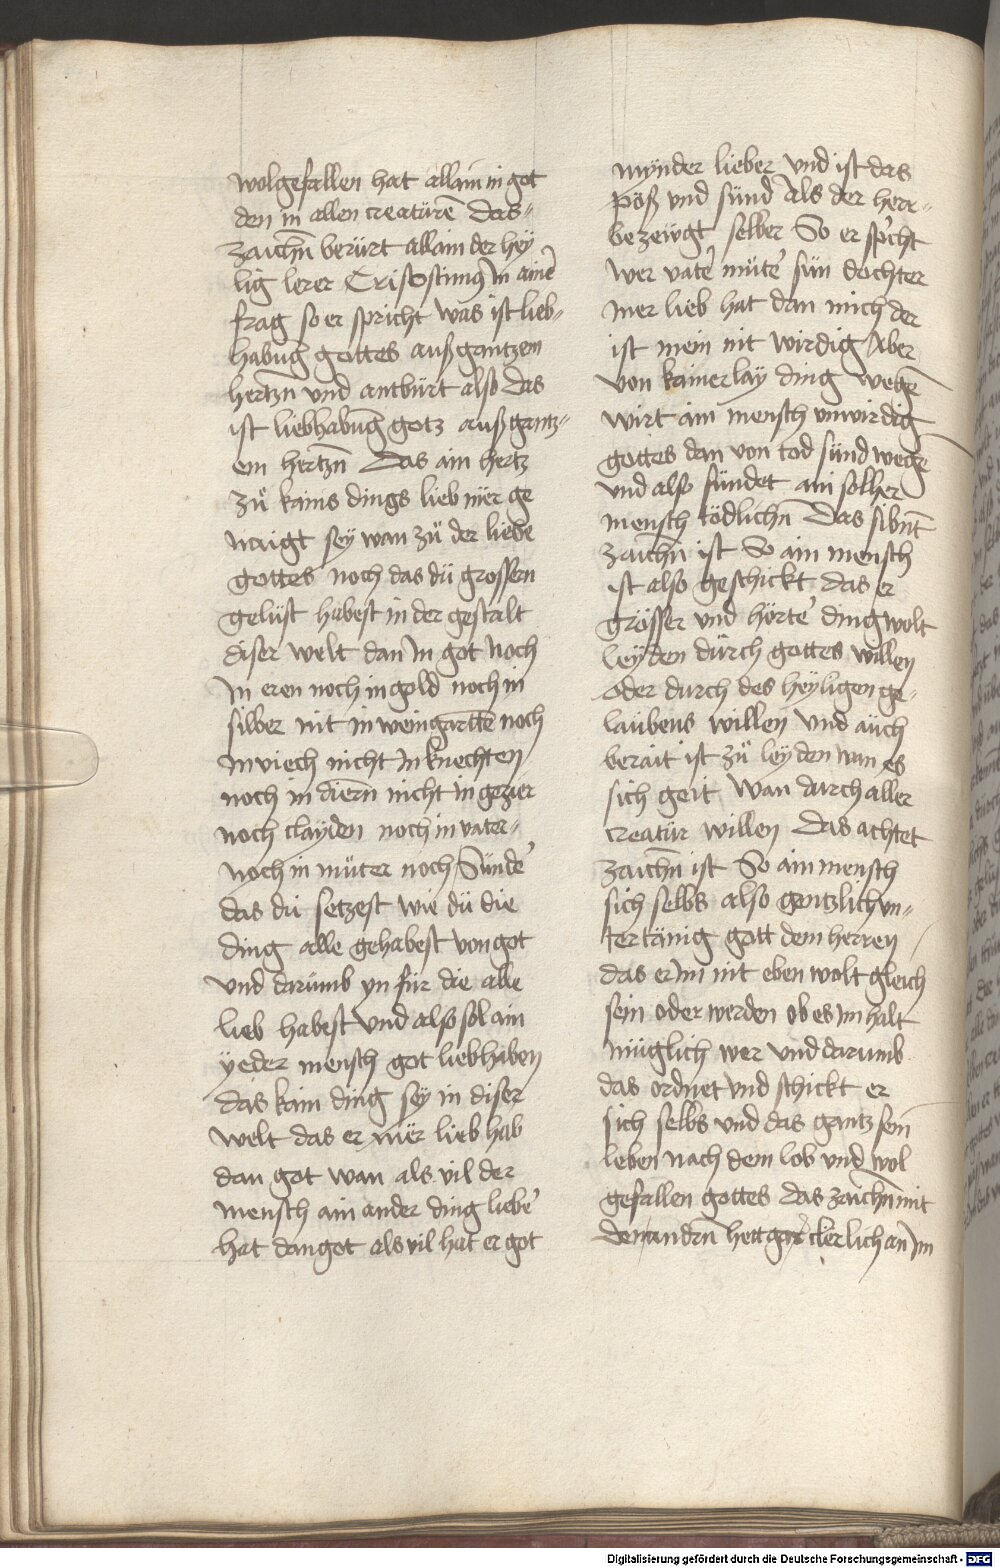 wolgefallen hat allain in got
den in allen creatürē das-
zaichn̄ berürt allain der hey
lig lerer Crisostimꝰ in ainē
frag so er spricht was ist lieb-
habūg gottes auß gantzem
hertzn̄ vnd antbürt also das
ist liebhabūg gotz auß gantz-
em hertzn̄ Das ain hertz
zů kains dings lieb mer ge
naigt sey wan zů der liebe
gottes noch das dü grossern
gelüst habest in der gestalt
diser welt dan in got noch
in eren noch in gold noch in
silber nit in weingarttē noch
in viech nicht in knechten
noch in diern̄ nicht in gezier
noch clayden noch in vater-
noch in můter noch Sünde'
das dü setzest wie dü die
ding alle gehabest von got
vnd darumb yn für die alle
lieb habest vnd also sol ain
yeder mensch got liebhaben
das kain ding sey in diser
welt das er mer lieb hab
dan got wan als vil der
mensch ain ander ding liebe'
hat dan got als vil hat er got
mynder lieber vnd ist das
pöß vnd sünd Als der herr-
bezewgt selber So er sp'cht
wer vate' můte' sün dochter
mer lieb hat dan mich der
ist mein nit wirdig Aber
von kainerlay ding wegē
wirt ain mensch vnwirdig
gottes dan von tod sünd wegē
vnd also sündet ain solher
mensch tödlichn̄ Das sibn̄t
zaichn̄ ist So ain mensch
ist also geschickt das er
grösser vnd hörte' ding wolt
leyden dürch gottes willen
oder durch des heyligen ge-
laubens willen vnd auch
berait ist zů leyden wan es
sich geit Wan durch aller
creatür willen Das achtet
zaichn̄ ist So ain mensch
sich selbs also gentzlich vn-
tertänig gott dem herren
das er im nit eben wolt gleich
sein oder werden ob es im halt
müglich wer vnd darumb
das ordnet vnd schickt er
sich selbs vnd das gantz sein
leben nach dem lob vnd wol
gefallen gottes das zaichn̄ mit
dem andrn̄ hett gar cklerlich an im
Digitalisierung gefördert durch die Deutsche Forschungsgemeinschaft - DFG